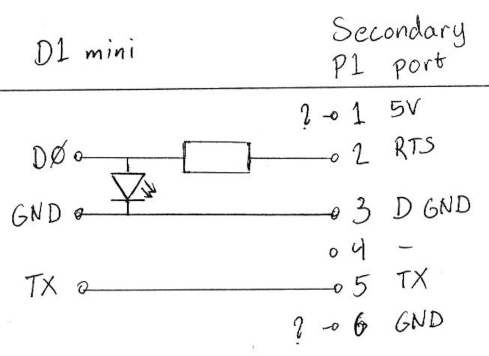 D1 mini
Secondary
P1 port
? 1 5V
DØ 2 RTS
GND 3 D GND
4 -
TX 5 TX
? 6 GND